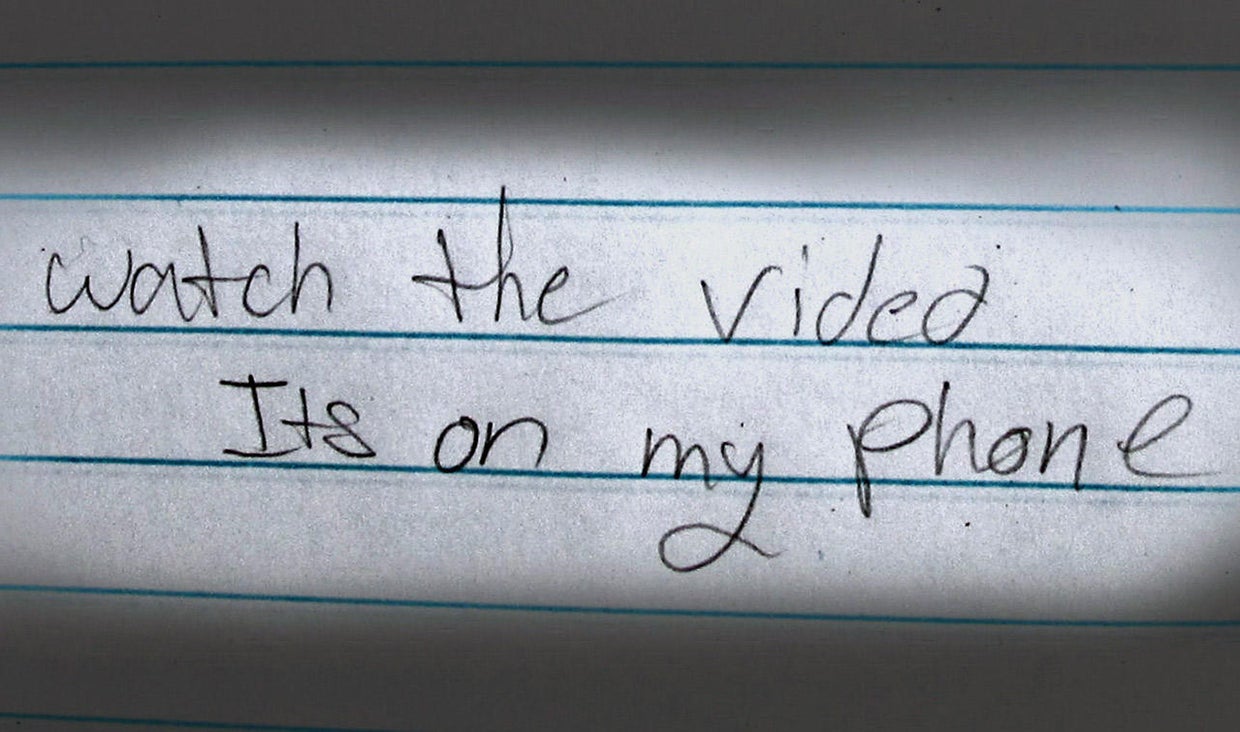 watch the video
Its on my phone